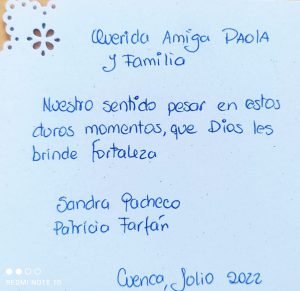 Querida Amiga PAOLA
y Familia
Nuestro sentido pesar en estos
duros momentos, que Dios les
brinde fortaleza
Sandra Pacheco
Patricia Farfán
Cuenca, Julio 2022
REDMI NOTE 10